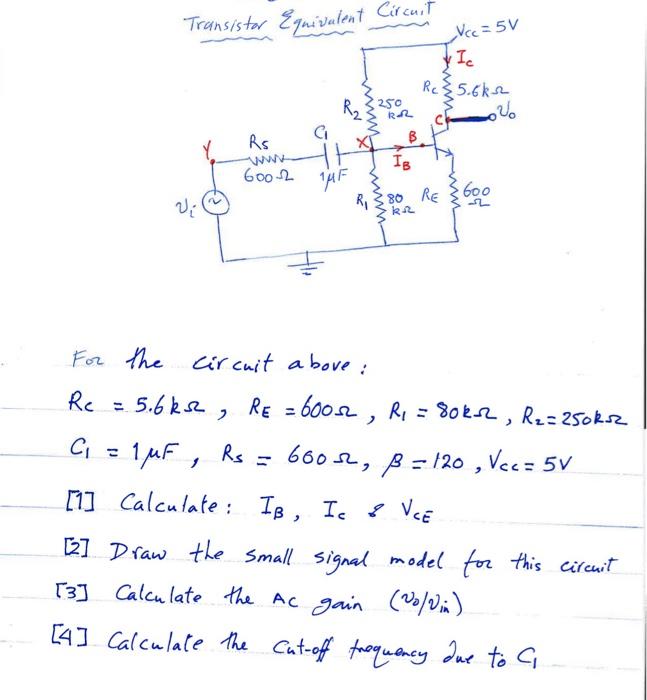 Transistor Equivalent Circuit
Vcc = 5V
Ic
Rc 5.6kΩ
R2 250 kΩ
C
Vo
C1
X
B
Y
Rs
600Ω
1μF
IB
Vi
R1 80 kΩ
RE 600 Ω
For the circuit above:
Rc = 5.6kΩ, RE = 600Ω, R1 = 80kΩ, R2 = 250kΩ
C1 = 1μF, Rs = 600Ω, β = 120, Vcc = 5V
[1] Calculate: IB, Ic & VCE
[2] Draw the small signal model for this circuit
[3] Calculate the AC gain (Vo/Vin)
[4] Calculate the cut-off frequency due to C1